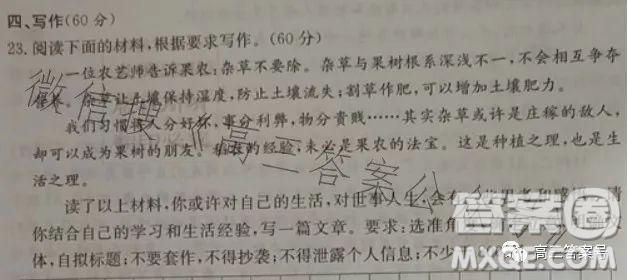 四、写作(60分)
23. 阅读下面的材料,根据要求写作。(60分)
一位农艺师告诉果农:杂草不要除。杂草与果树根系深浅不一,不会相互争夺
杂草让土壤保持湿度,防止土壤流失;割草作肥,可以增加土壤肥力。
我们习惯将人分好坏,事分利弊,物分贵贱……其实杂草或许是庄稼的敌人,
却可以成为果树的朋友。粮农的经验,未必是果农的法宝。这是种植之理,也是生
活之理。
读了以上材料,你或许对自己的生活,对世事人生,会有
你结合自己的学习和生活经验,写一篇文章。要求:选准角
体,自拟标题;不要套作,不得抄袭;不得泄露个人信息;不少
微信搜 高三答案公
答案圈
MXQE.COM
高三答案号